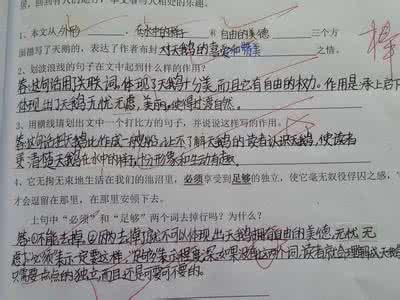 里，回到有人的地方，享受着与人相处的乐趣。
1、本文从 外形 、 在水中的样子 和 自由的美德 三个方
面描写了天鹅的，表达了作者布封 对天鹅的喜爱和赞美 之情。
2、划波浪线的句子在文中起到什么样的作用？
答：这句话用了关联词，体现了天鹅十分美，而且它有自由的权力。作用是承上启下
体现出了天鹅无忧无虑，美丽，使得过渡自然。
3、用横线请划出文中一个打比方的句子，并说说这样写的作用。
答：这句话把天鹅比作成一艘船，让不了解天鹅的读者认识天鹅，使读者
更清楚天鹅在水中的样子，十分形象和生动有趣。
4、它无拘无束地生活在我们的池沼里，必须享受到足够的独立，使它毫无奴役俘囚之感，它
才会逗留在那里，在那里安顿下去。
上句中“必须”和“足够”两个词去掉行吗？为什么？
答：不能去掉，因为去掉就不可以体现出天鹅拥有自由的美德，无忧无
虑，必须表示一定要这样，足够表示程度深，如果没有这两个词，读者就会理解成天鹅
只需要一点点的独立，而且还是可要可不要的。